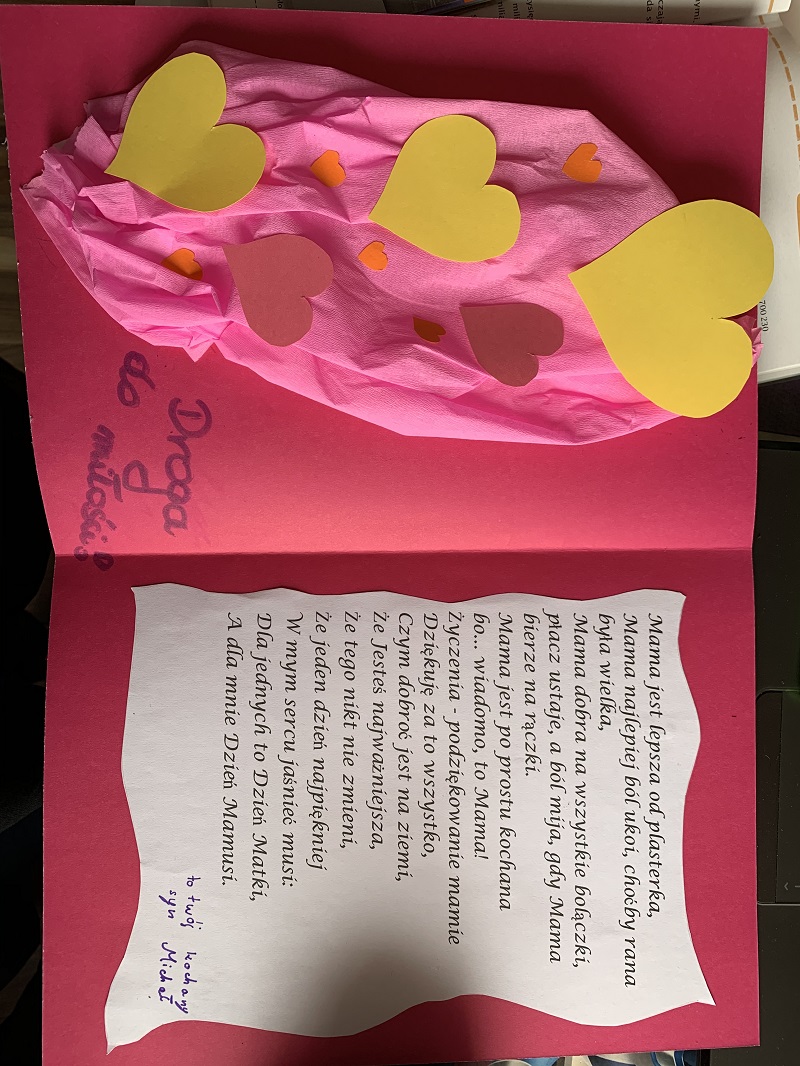 Droga
do
miłości?
Mama jest lepsza od plasterka,
Mama najlepiej ból ukoi, choćby rana
była wielka,
Mama dobra na wszystkie bolączki,
płacz ustaje, a ból mija, gdy Mama
bierze na rączki.
Mama jest po prostu kochana
bo... wiadomo, to Mama!
Życzenia - podziękowanie mamie
Dziękuję za to wszystko,
Czym dobroć jest na ziemi,
Że Jesteś najważniejsza,
Że tego nikt nie zmieni,
Że jeden dzień najpiękniej
W mym sercu jaśnieć musi:
Dla jednych to Dzień Matki,
A dla mnie Dzień Mamusi.
to twój kochany
syn Michał
700 230